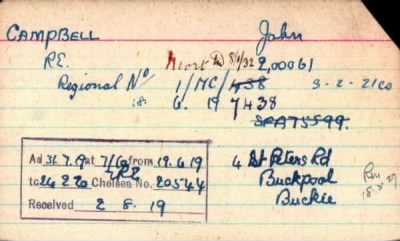 CAMPBELL John
R.E. 2,00061
Regional No 1/MC/438 3-2-21
18. 6. 19 7438
SFA75599.
Ad 31.7.19 at 7/6 from 19.6.19
to 24 2 20 Chelsea No. 20544
Received 2 8. 19
4 St Peters Rd
Buckpool
Buckie